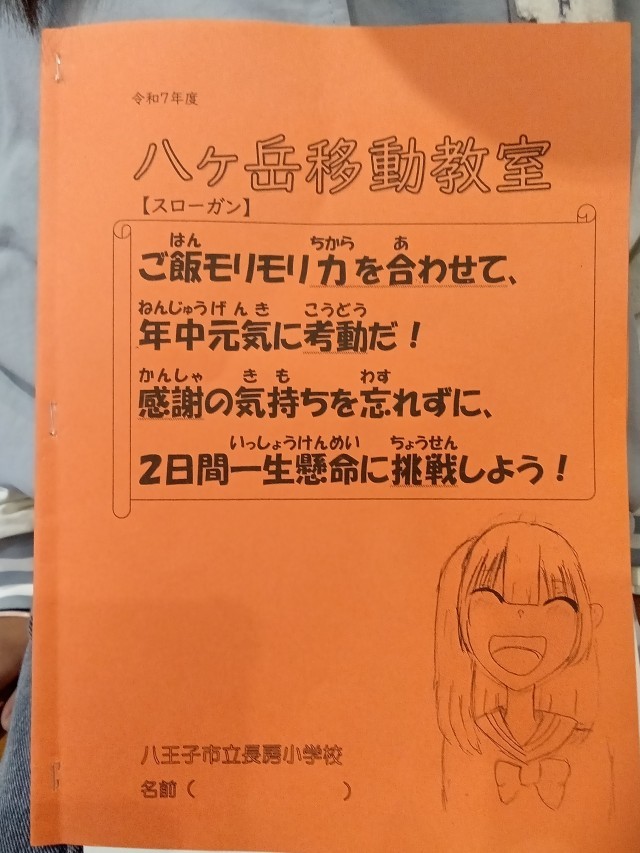 令和7年度
八ヶ岳移動教室
【スローガン】
はん ちから あ
ご飯モリモリ力を合わせて、
ねんじゅうげんき こうどう
年中元気に考動だ！
かんしゃ きも わす
感謝の気持ちを忘れずに、
いっしょうけんめい ちょうせん
2日間一生懸命に挑戦しよう！
八王子市立長房小学校
名前（ ）